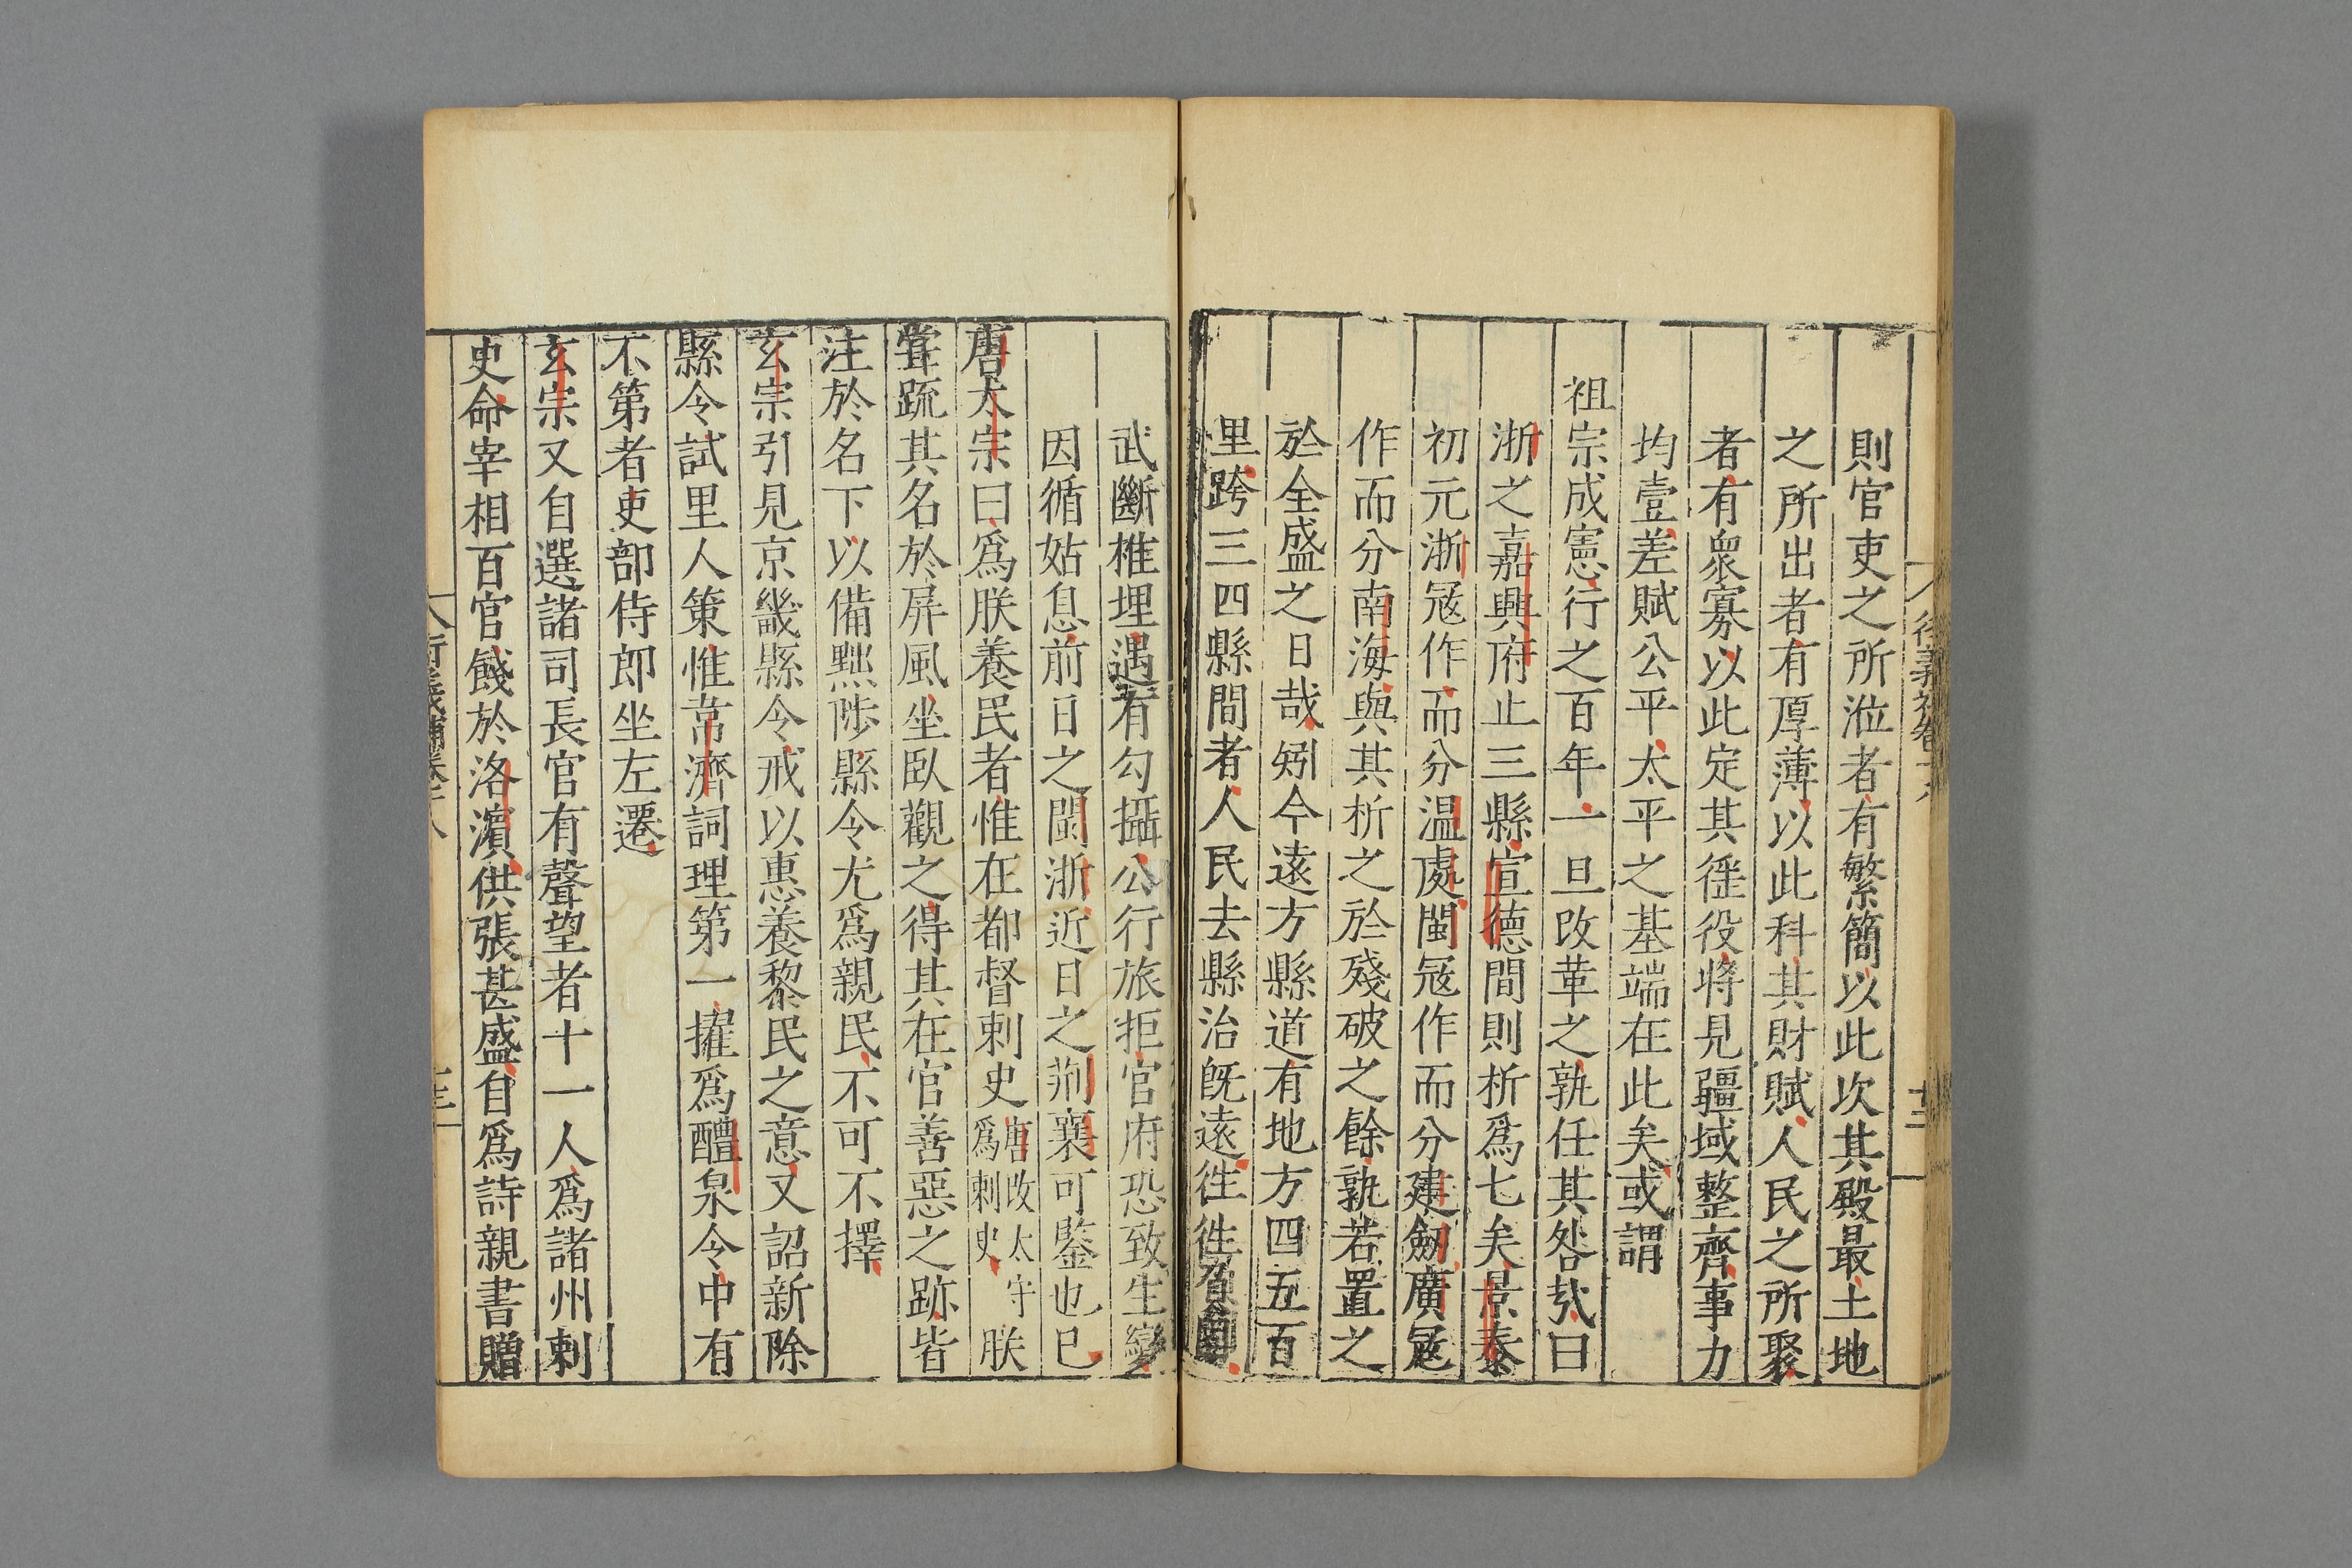 則官吏之所涖者有繁簡以此次其殿最土地
之所出者有厚薄以此科其財賦人民之所聚
者有衆寡以此定其徭役將見疆域整齊事力
均壹差賦公平太平之基端在此矣或謂
祖宗成憲行之百年一旦改革之孰任其咎㢤曰
浙之嘉興府止三縣宣德間則析爲七矣景泰
初元浙冦作而分温處閩冦作而分建劒廣冦
作而分南海與其析之於殘破之餘孰若置之
於全盛之日哉矧今遠方縣道有地方四五百
里跨三四縣間者人民去縣治旣遠徃徃負固
武斷椎埋遇有勾攝公行旅拒官府恐致生變
因循姑息前日之閩浙近日之荆襄可鑒也已
唐太宗曰爲朕養民者惟在都督刺史唐改太守爲刺史朕
甞疏其名於屏風坐臥觀之得其在官善惡之跡皆
注於名下以備黜陟縣令尤爲親民不可不擇
玄宗引見京畿縣令戒以惠養黎民之意又詔新除
縣令試里人策惟韋濟詞理第一擢爲醴泉令中有
不第者吏部侍郎坐左遷
玄宗又自選諸司長官有聲望者十一人爲諸州刺
史命宰相百官餞於洛濵供張甚盛自爲詩親書贈